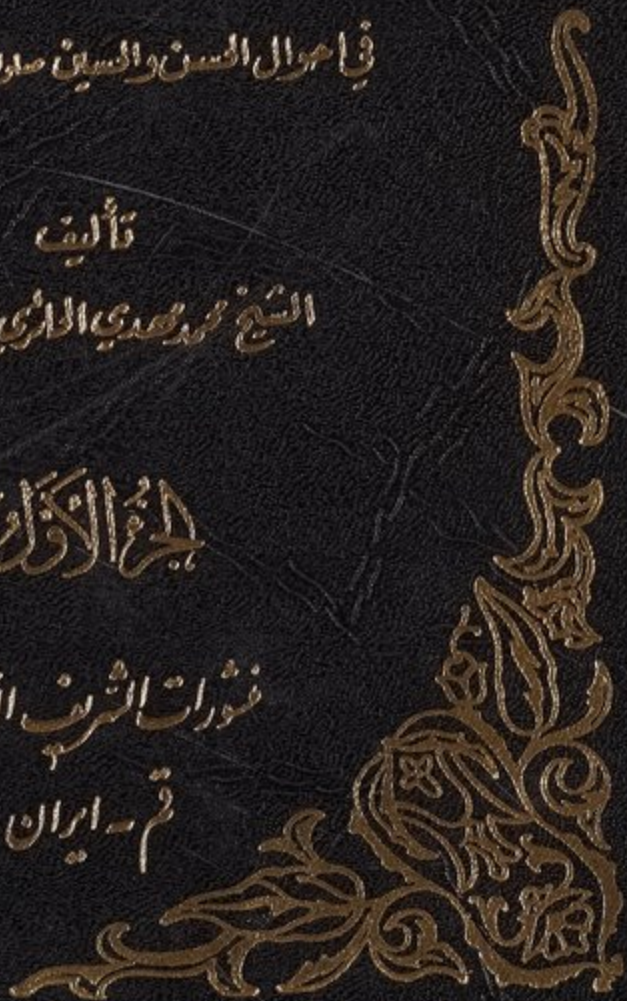 في احوال الحسن والحسين
تأليف
الشيخ محمد مهدي الحائري
الجزء الاول
منشورات الشريف
قم - ايران